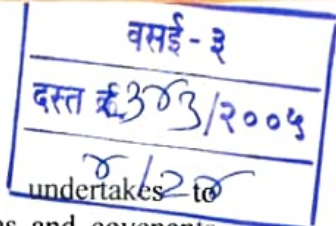 वसई - ३
दस्त क्र. ३४३/२००५
४/२४
undertakes to
and covenants